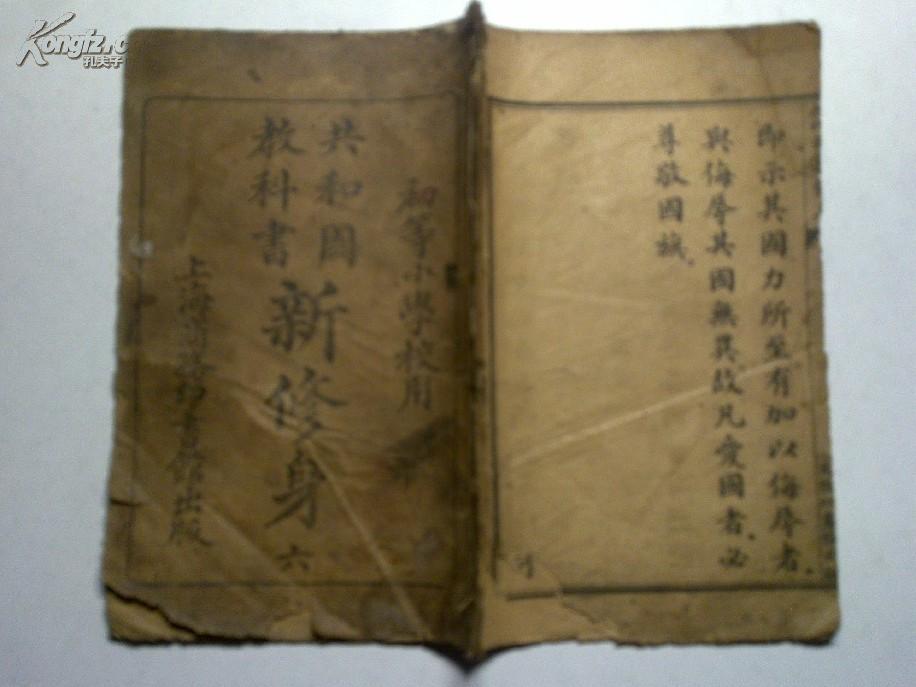 即示其國力所至有加以侮辱者.
與侮辱其國無異故凡愛國者.必
尊敬國旗.
初等小學校用
共和國
教科書
新修身
六
上海商務印書館出版
Kongfz.c
孔夫子